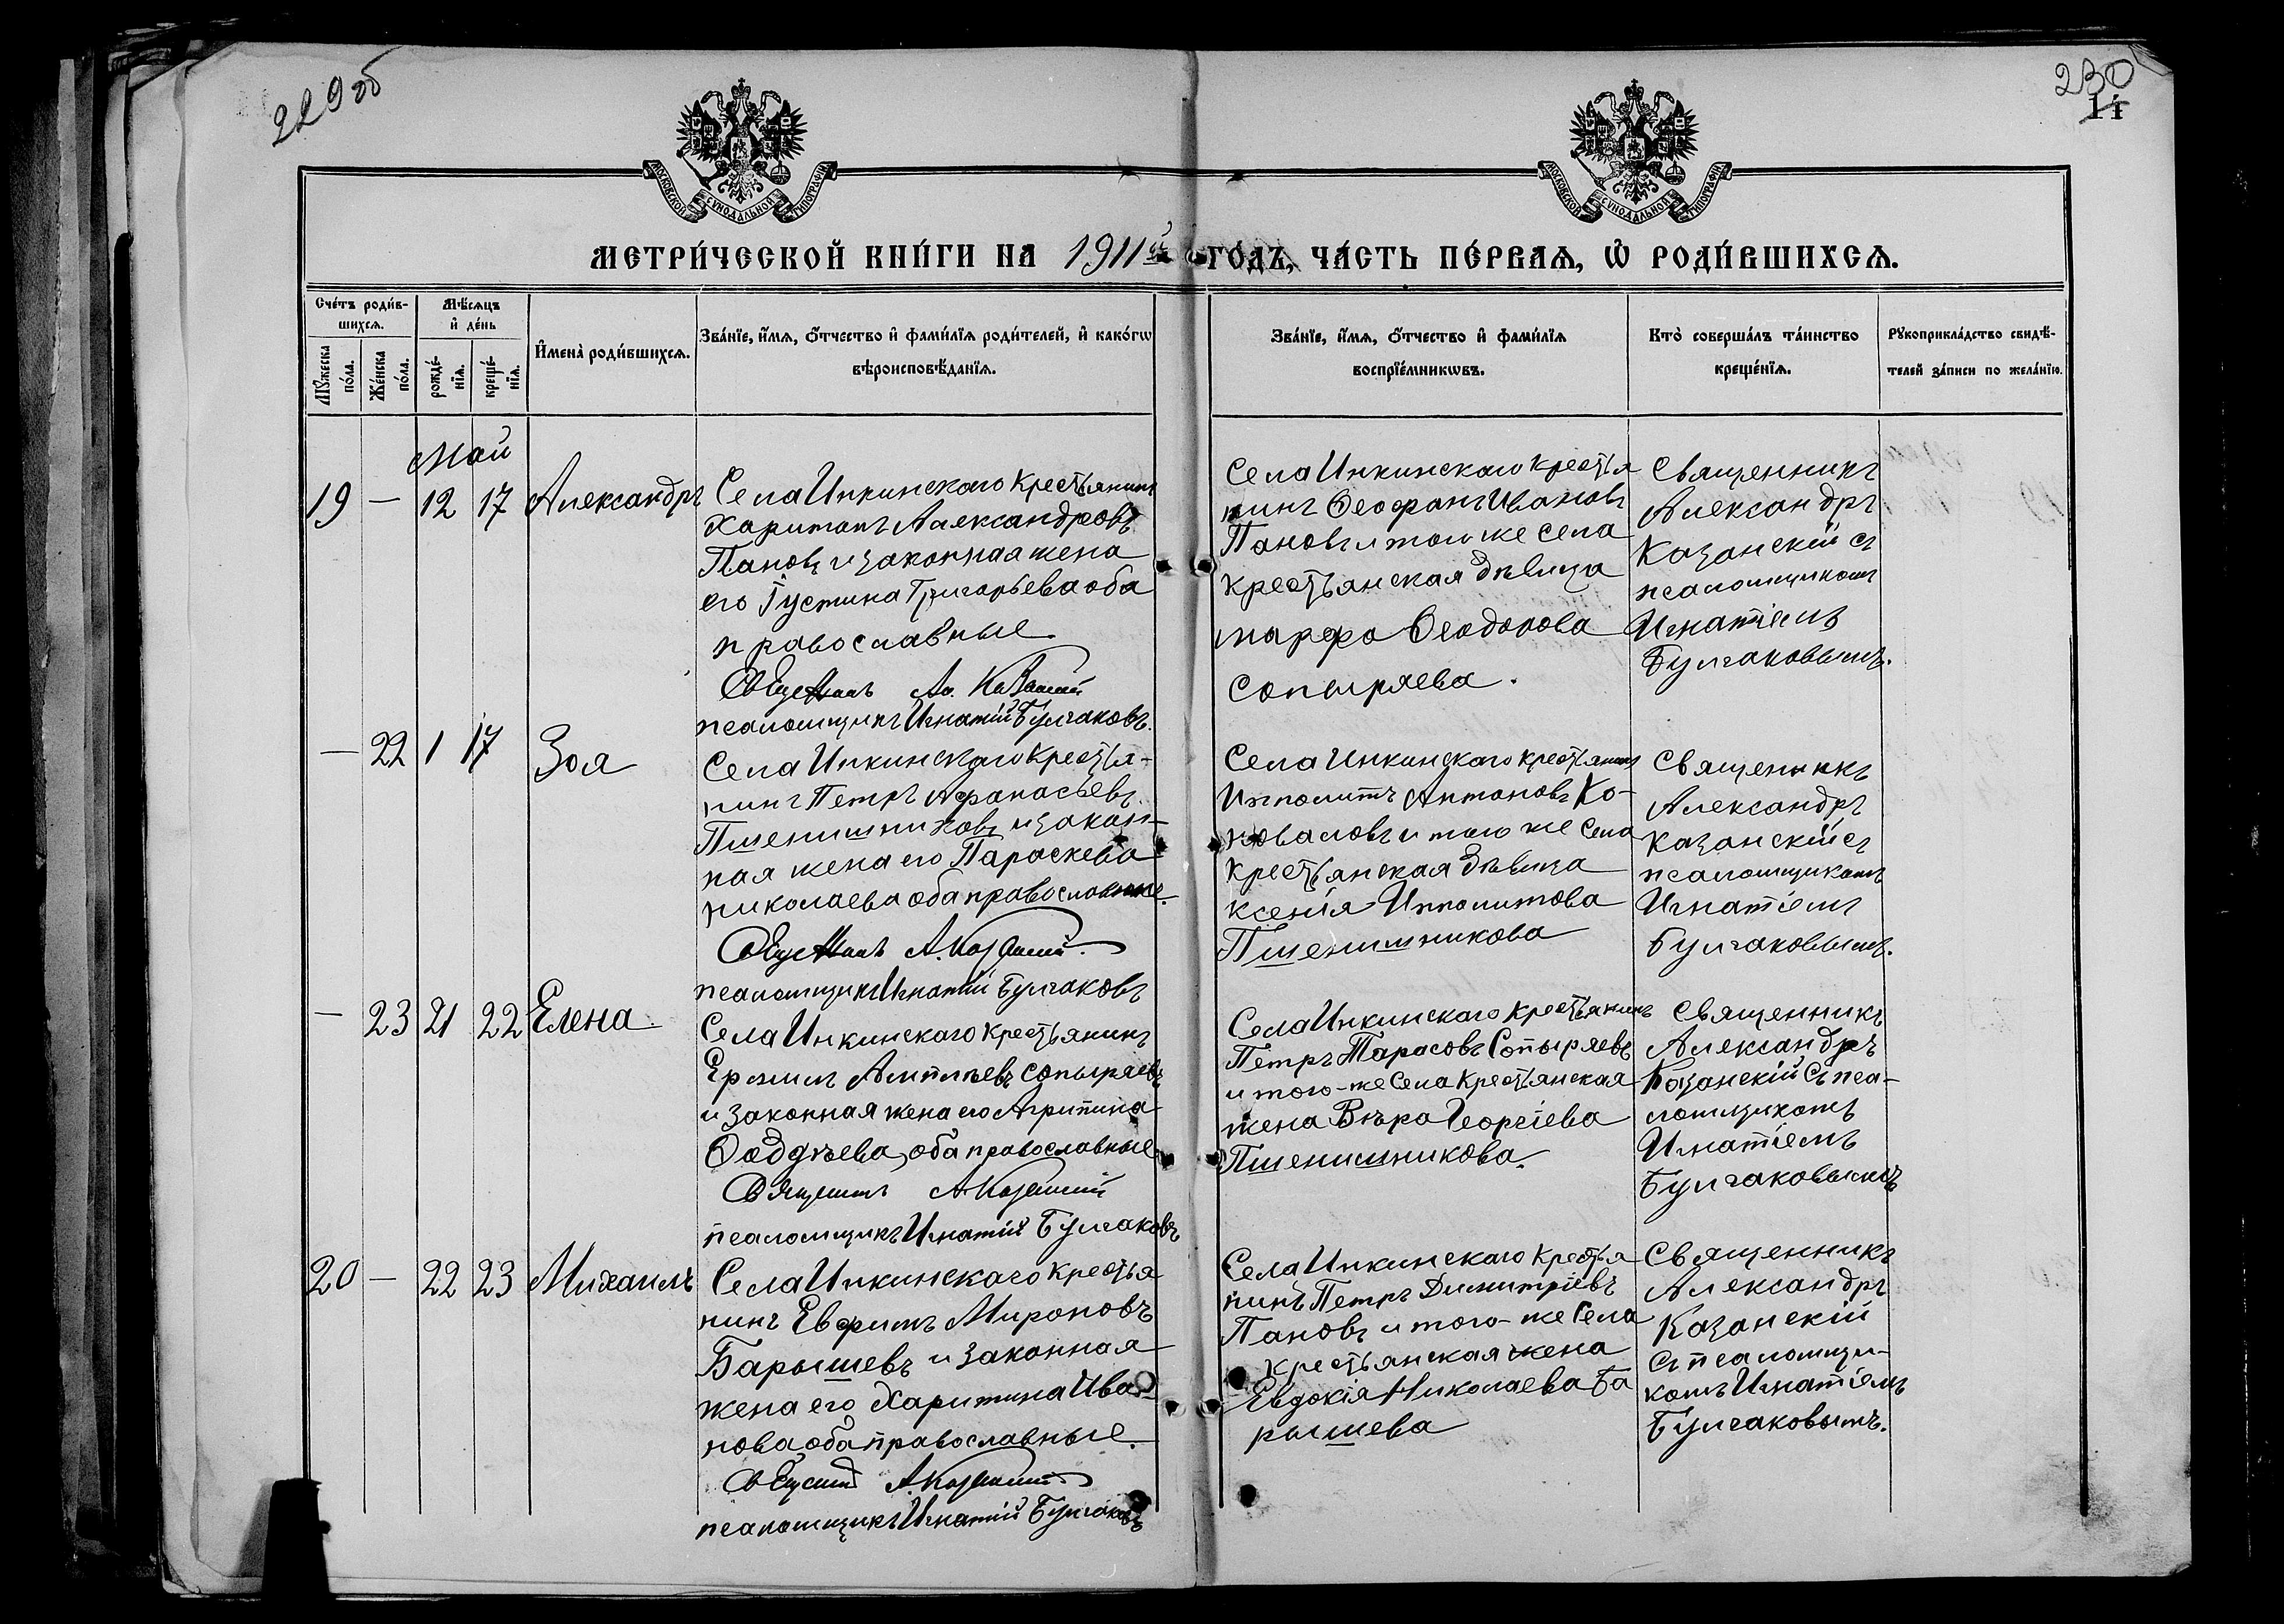 229 об
230
14
МОСКОВСКОЙ СѴНОДАЛЬНОЙ ТИПОГРАФІИ
МОСКОВСКОЙ СѴНОДАЛЬНОЙ ТИПОГРАФІИ
МЕТРИ́ЧЕСКОЙ КНИ́ГИ НА 1911й ГО́ДЪ, ЧА́СТЬ ПЕ́РВАѦ, Ѽ РОДИ́ВШИХСѦ.
Сче́тъ роди́в-
шихсѧ.
Мꙋ́жеска по́ла.
Же́нска по́ла.
Мѣ́сѧцъ
и҆ де́нь
рожде́-
нїѧ.
креще́-
нїѧ.
И҆мена̀ роди́вшихсѧ.
Зва́нїе, и҆́мѧ, ѻ҆́тчество и҆ фами́лїѧ роди́телей, и҆ како́гѡ
вѣроисповѣ́данїѧ.
Зва́нїе, и҆́мѧ, ѻ҆́тчество и҆ фами́лїѧ
воспрїе́мникѡвъ.
Кто̀ соверша́лъ та́инство
креще́нїѧ.
Рꙋкоприкла́дство свидѣ́-
телей за́писи по жела́нїю.
Май
19 — 12 17 Александръ
Села Инкинского крестьянинъ
Харитонъ Александровъ
Пановъ и законная жена
его Іустина Григорьева оба
православные
Священникъ Ал. Казанскій
псаломщикъ Игнатій Булгаковъ.
Села Инкинского крестья
нинъ Ѳеофанъ Ивановъ
Пановъ и того же села
крестьянская дѣвица
Марфа Ѳеодорова
Сопыряева.
Священникъ
Александръ
Казанскій съ
псаломщикомъ
Игнатіемъ
Булгаковымъ.
— 22 1 17 Зоя
Села Инкинскаго крестья-
нинъ Петръ Афанасьевъ
Пшенишниковъ и закон-
ная жена его Параскева
Николаева оба православные.
Священникъ А. Казанскій.
псаломщикъ Игнатій Булгаковъ
Села Инкинскаго крестьянинъ
Ипполитъ Антоновъ Ко-
новаловъ и того же села
крестьянская дѣвица
Ксенія Ипполитова
Пшенишникова
Священникъ
Александръ
Казанскій съ
псаломщикомъ
Игнатіемъ
Булгаковымъ.
— 23 21 22 Елена.
Села Инкинскаго крестьянинъ
Ермилъ Сопыряевъ
и законная жена его Агрипина
Ѳаддѣева, оба православные
Священникъ А. Казанскій
псаломщикъ Игнатій Булгаковъ
Села Инкинскаго крестьянинъ
Петръ Тарасовъ Сопыряевъ
и того-же села крестьянская
жена Вѣра Георгіева
Пшенишникова.
Священникъ
Александръ
Казанскій съ пса-
ломщикомъ
Игнатіемъ
Булгаковымъ
20 — 22 23 Михаилъ
Села Инкинскаго крестья
нинъ Евфимъ Мироновъ
Барышевъ и законная
жена его Харитина Ива-
нова оба православные.
Священникъ А. Казанскій
псаломщикъ Игнатій Булгаковъ
Села Инкинскаго крестья
нинъ Петръ Димитріевъ
Пановъ и того-же села
крестьянская жена
Евдокія Николаева Ба
рышева
Священникъ
Александръ
Казанскій
съ псаломщи-
комъ Игнатіемъ
Булгаковымъ.